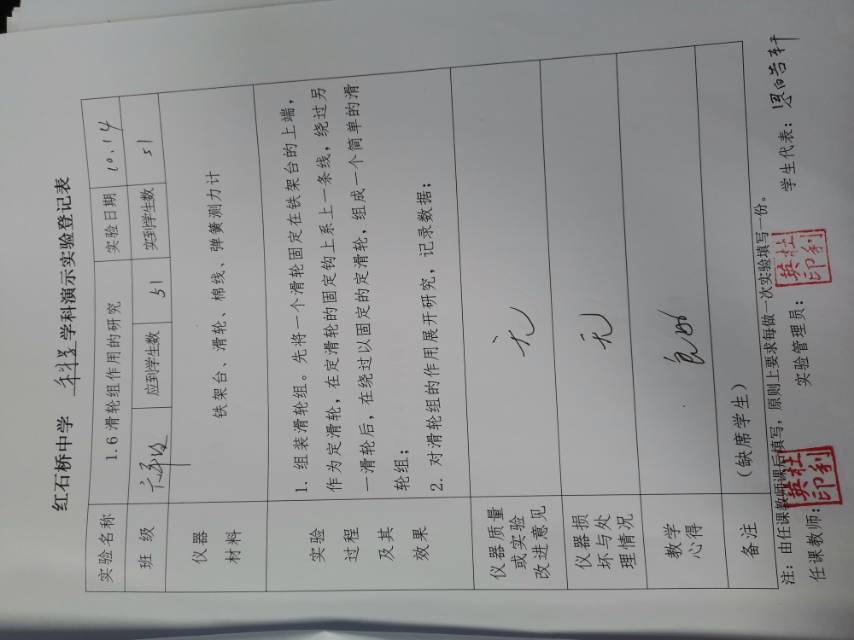 红石桥中学 科学 学科演示实验登记表
实验名称 1.6 滑轮组作用的研究 实验日期 10.14
班 级 六年级 应到学生数 51 实到学生数 51
仪器
材料
铁架台、滑轮、棉线、弹簧测力计
实验
过程
及其
效果
1. 组装滑轮组。先将一个滑轮固定在铁架台的上端，
作为定滑轮，在定滑轮的固定钩上系上一条线，绕过另
一滑轮后，在绕过以固定的定滑轮，组成一个简单的滑
轮组；
2. 对滑轮组的作用展开研究，记录数据；
仪器质量
或实验
改进意见
无
仪器损
坏与处
理情况
无
教学
心得
良好
备注 （缺席学生）
注：由任课教师课后填写，原则上要求每做一次实验填写一份。
任课教师： 实验管理员： 学生代表：
英杜
印利
英杜
印利